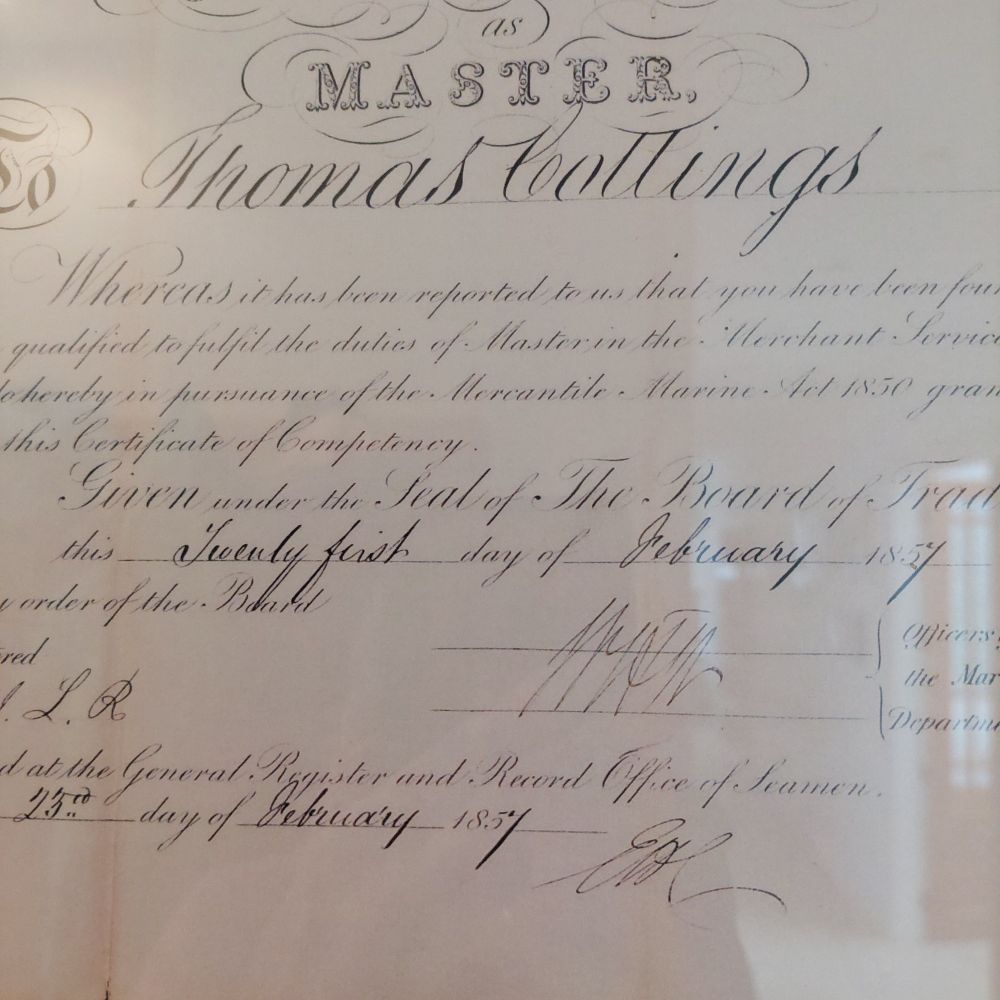 as
MASTER,
To Thomas Collings
Whereas it has been reported to us that you have been foun
qualified to fulfil the duties of Master in the Merchant Service
do hereby in pursuance of the Mercantile Marine Act 1850 gran
this Certificate of Competency.
Given under the Seal of The Board of Trad
this Twenty first day of February 1857
y order of the Board
Officers
red
the Mar
L. R
Departme
d at the General Register and Record Office of Seamen.
day of February 1857